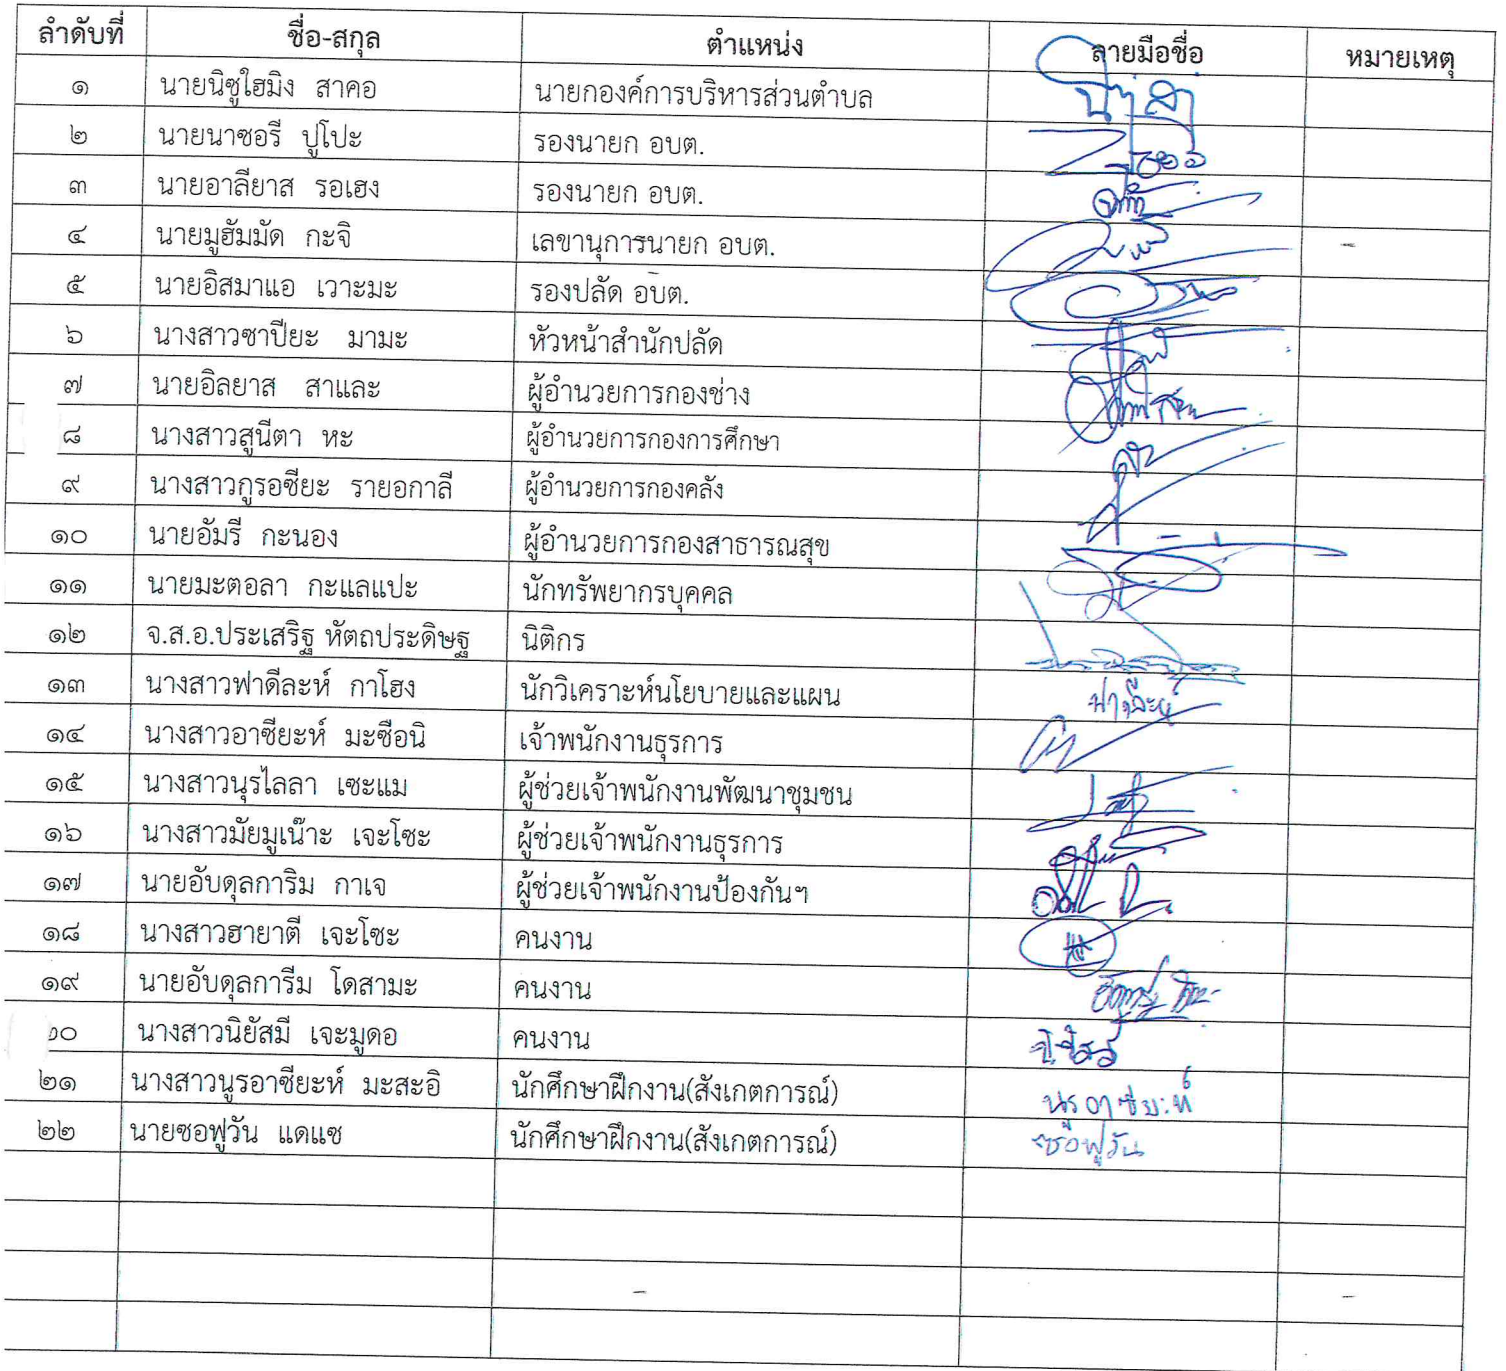 ลำดับที่ ชื่อ-สกุล ตำแหน่ง ลายมือชื่อ หมายเหตุ
๑ นายนิซูไฮมิง สาคอ นายกองค์การบริหารส่วนตำบล
๒ นายนาซอรี ปูโปะ รองนายก อบต.
๓ นายอาลียาส รอเฮง รองนายก อบต.
๔ นายมูฮัมมัด กะจิ เลขานุการนายก อบต.
๕ นายอิสมาแอ เวาะมะ รองปลัด อบต.
๖ นางสาวซาปียะ มามะ หัวหน้าสำนักปลัด
๗ นายอิลยาส สาและ ผู้อำนวยการกองช่าง
๘ นางสาวสูนีตา หะ ผู้อำนวยการกองการศึกษา
๙ นางสาวกูรอซียะ รายอกาลี ผู้อำนวยการกองคลัง
๑๐ นายอัมรี กะนอง ผู้อำนวยการกองสาธารณสุข
๑๑ นายมะตอลา กะแลแปะ นักทรัพยากรบุคคล
๑๒ จ.ส.อ.ประเสริฐ หัตถประดิษฐ นิติกร
๑๓ นางสาวฟาดีละห์ กาโฮง นักวิเคราะห์นโยบายและแผน ฟาดีละห์
๑๔ นางสาวอาซียะห์ มะซือนิ เจ้าพนักงานธุรการ
๑๕ นางสาวนุรไลลา เซะแม ผู้ช่วยเจ้าพนักงานพัฒนาชุมชน
๑๖ นางสาวมัยมูเน๊าะ เจะโซะ ผู้ช่วยเจ้าพนักงานธุรการ
๑๗ นายอับดุลการิม กาเจ ผู้ช่วยเจ้าพนักงานป้องกันฯ
๑๘ นางสาวฮายาตี เจะโซะ คนงาน
๑๙ นายอับดุลการีม โดสามะ คนงาน
๒๐ นางสาวนิยัสมี เจะมูดอ คนงาน
๒๑ นางสาวนูรอาซียะห์ มะสะอิ นักศึกษาฝึกงาน(สังเกตการณ์) นูรอาซียะห์
๒๒ นายซอฟูวัน แดแซ นักศึกษาฝึกงาน(สังเกตการณ์) ซอฟูวัน